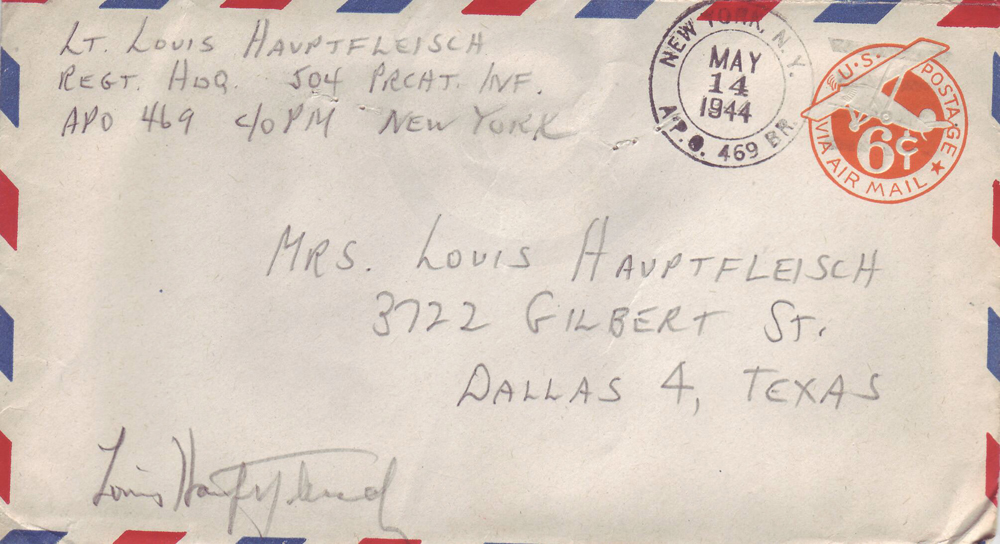 Lt. Louis Hauptfleisch
Regt. Hdq. 504 Prcht. Inf.
APO 469 c/o PM New York
NEW YORK, N.Y.
MAY
14
1944
A.P.O. 469 BR.
U.S. POSTAGE
6¢
VIA AIR MAIL
Mrs. Louis Hauptfleisch
3722 Gilbert St.
Dallas 4, Texas
Louis Hauptfleisch